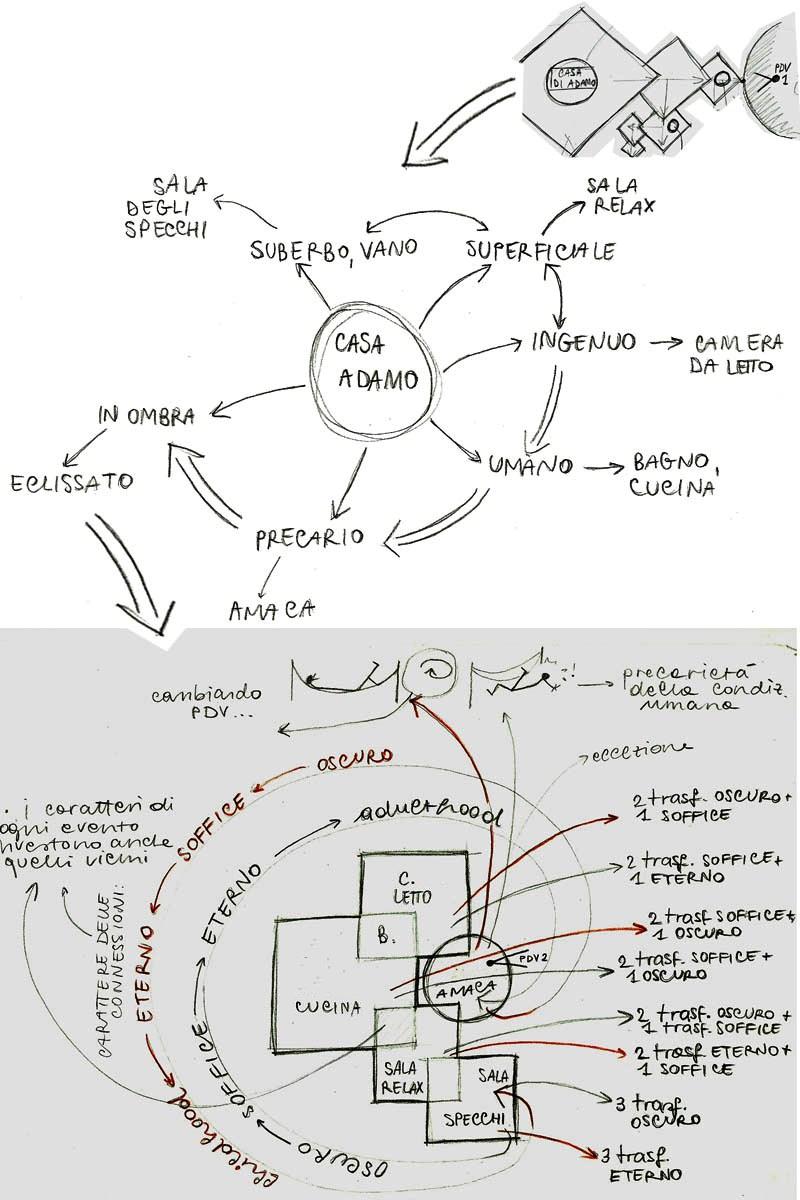 CASA
DI ADAMO
PDV
1
SALA
DEGLI
SPECCHI
SALA
RELAX
SUBERBO, VANO
SUPERFICIALE
CASA
ADAMO
INGENUO
CAMERA
DA LETTO
IN OMBRA
ECLISSATO
UMANO
BAGNO,
CUCINA
PRECARIO
AMACA
cambiando
PDV...
precarietà
della condiz.
umana
eccezione
OSCURO
SOFFICE
ETERNO
childhood
adulthood
ETERNO
SOFFICE
OSCURO
. i caratteri di
ogni evento
investono anche
quelli vicini
CARATTERE DELLE
CONNESSIONI:
C.
LETTO
B.
CUCINA
AMACA
PDV2
SALA
RELAX
SALA
SPECCHI
2 trasf. OSCURO+
1 SOFFICE
2 trasf. SOFFICE+
1 ETERNO
2 trasf SOFFICE+
1 OSCURO
2 trasf. SOFFICE+
1 OSCURO
2 trasf. OSCURO+
1 trasf. SOFFICE
2 trasf ETERNO+
1 SOFFICE
3 trasf.
OSCURO
3 trasf.
ETERNO